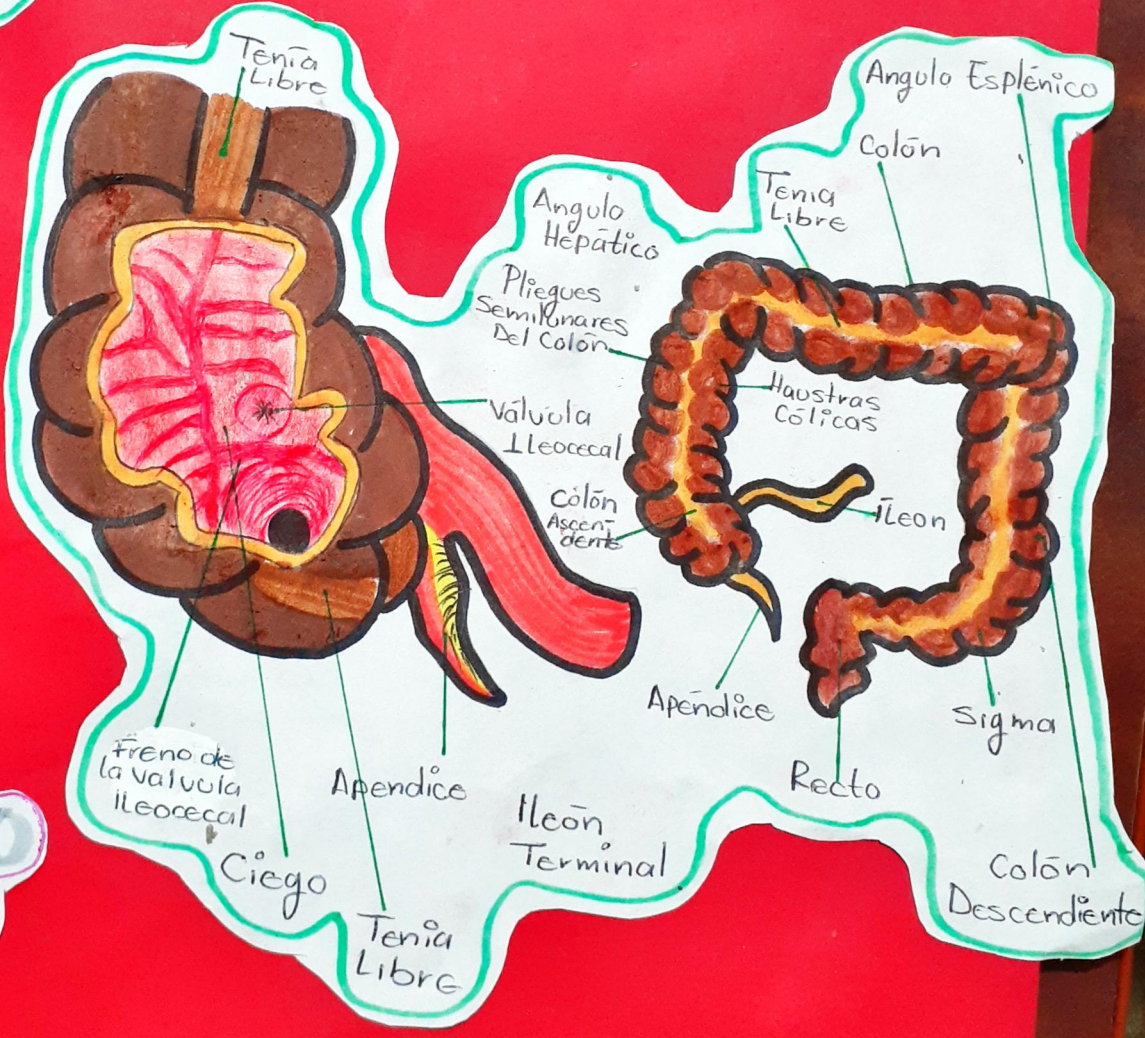 Tenía
Libre
Angulo Esplénico
Colón
Tenia
Libre
Angulo
Hepático
Pliegues
Semilunares
Del Colón
Haustras
Cólicas
Válvula
Ileocecal
Colón
Ascen
dente
Íleon
Apéndice
Sigma
Recto
Freno de
la valvula
ileocecal
Apendice
Ileón
Terminal
Ciego
Tenia
Libre
Colón
Descendiente